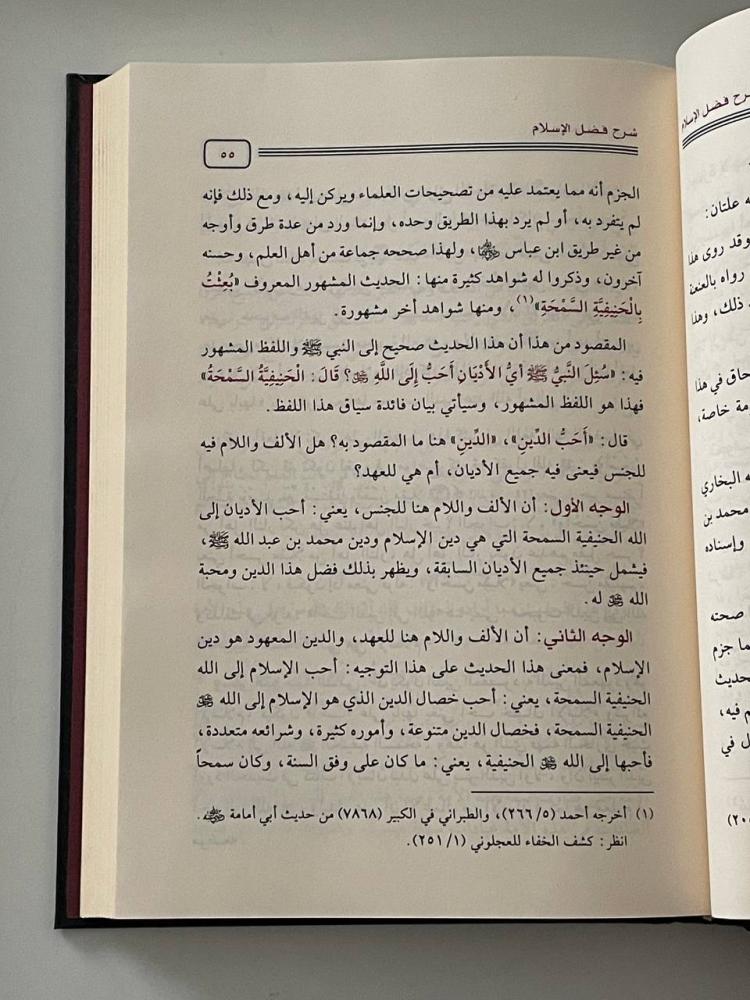 شرح فضل الإسلام
٥٥
الجزم أنه مما يعتمد عليه من تصحيحات العلماء ويركن إليه، ومع ذلك فإنه
لم يتفرد به، أو لم يرد بهذا الطريق وحده، وإنما ورد من عدة طرق وأوجه
من غير طريق ابن عباس ﵄، ولهذا صححه جماعة من أهل العلم، وحسنه
آخرون، وذكروا له شواهد كثيرة منها: الحديث المشهور المعروف «بُعِثْتُ
بِالْحَنِيفِيَّةِ السَّمْحَةِ»(١)، ومنها شواهد أخر مشهورة.
المقصود من هذا أن هذا الحديث صحيح إلى النبي ﷺ واللفظ المشهور
فيه: «سُئِلَ النَّبِيُّ ﷺ أَيُّ الأَدْيَانِ أَحَبُّ إِلَى اللَّهِ ﷿؟ قَالَ: الْحَنِيفِيَّةُ السَّمْحَةُ»
فهذا هو اللفظ المشهور، وسيأتي بيان فائدة سياق هذا اللفظ.
قال: «أَحَبُّ الدِّينِ»، «الدِّينِ» هنا ما المقصود به؟ هل الألف واللام فيه
للجنس فيعنى فيه جميع الأديان، أم هي للعهد؟
الوجه الأول: أن الألف واللام هنا للجنس، يعني: أحب الأديان إلى
الله الحنيفية السمحة التي هي دين الإسلام ودين محمد بن عبد الله ﷺ،
فيشمل حينئذ جميع الأديان السابقة، ويظهر بذلك فضل هذا الدين ومحبة
الله ﷿ له.
الوجه الثاني: أن الألف واللام هنا للعهد، والدين المعهود هو دين
الإسلام، فمعنى هذا الحديث على هذا التوجيه: أحب الإسلام إلى الله
الحنيفية السمحة، يعني: أحب خصال الدين الذي هو الإسلام إلى الله ﷿
الحنيفية السمحة، فخصال الدين متنوعة، وأموره كثيرة، وشرائعه متعددة،
فأحبها إلى الله ﷿ الحنيفية، يعني: ما كان على وفق السنة، وكان سمحاً
(١) أخرجه أحمد (٢٦٦/٥)، والطبراني في الكبير (٧٨٦٨) من حديث أبي أمامة ﵁.
انظر: كشف الخفاء للعجلوني (٢٥١/١).
شرح فضل الإسلام
علتان:
وقد روى هذا
رواه بالعنعنة
ذلك، وهذا
في هذا
خاصة،
البخاري
محمد بن
وإسناده
صحته
جزم
فيه،
في